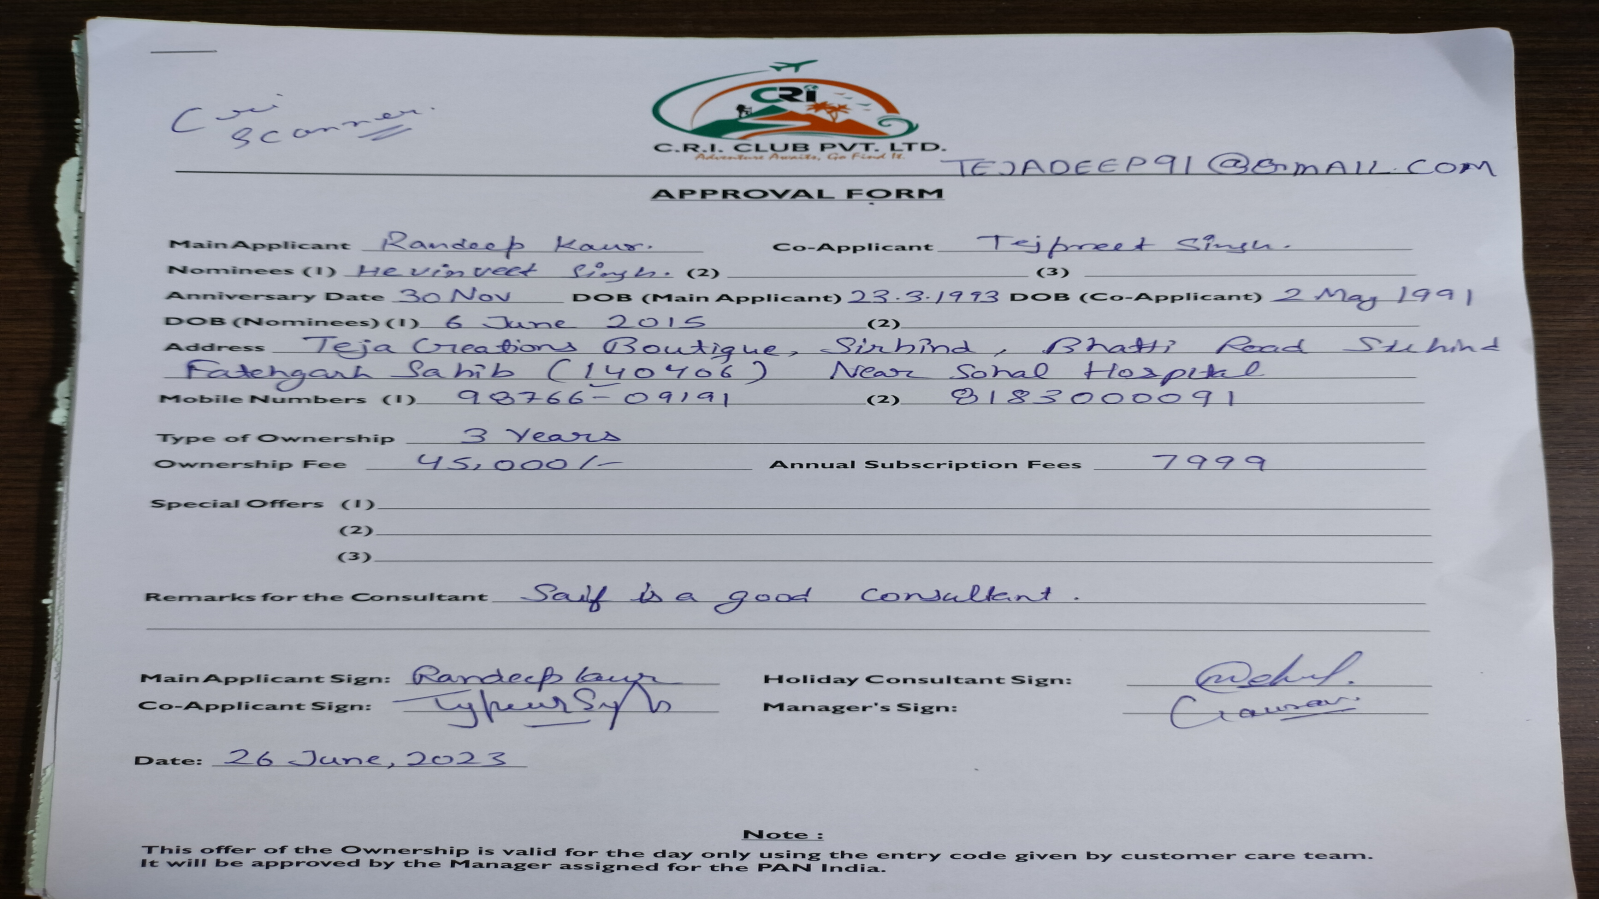 Cri
Scanner.
CRi
C.R.I. CLUB PVT. LTD.
Adventure Awaits, Go Find It.
TEJADEEP91@GMAIL.COM
APPROVAL FORM
Main Applicant Randeep Kaur. Co-Applicant Tejpreet Singh.
Nominees (1) Hevinveet Singh. (2) (3)
Anniversary Date 30 Nov DOB (Main Applicant) 23.3.1993 DOB (Co-Applicant) 2 May 1991
DOB (Nominees) (1) 6 June 2015 (2)
Address Teja Creations Boutique, Sirhind, Bhatti Road
Fatehgarh Sahib (140406) Near Sohal Hospital
Mobile Numbers (1) 98766-09191 (2) 8183000091
Type of Ownership 3 Years
Ownership Fee 45,000/- Annual Subscription Fees 7999
Special Offers (1)
(2)
(3)
Remarks for the Consultant Saif is a good consultant.
Main Applicant Sign: Randeep Kaur Holiday Consultant Sign:
Co-Applicant Sign: Manager's Sign: Gaurav
Date: 26 June, 2023
Note :
This offer of the Ownership is valid for the day only using the entry code given by customer care team.
It will be approved by the Manager assigned for the PAN India.